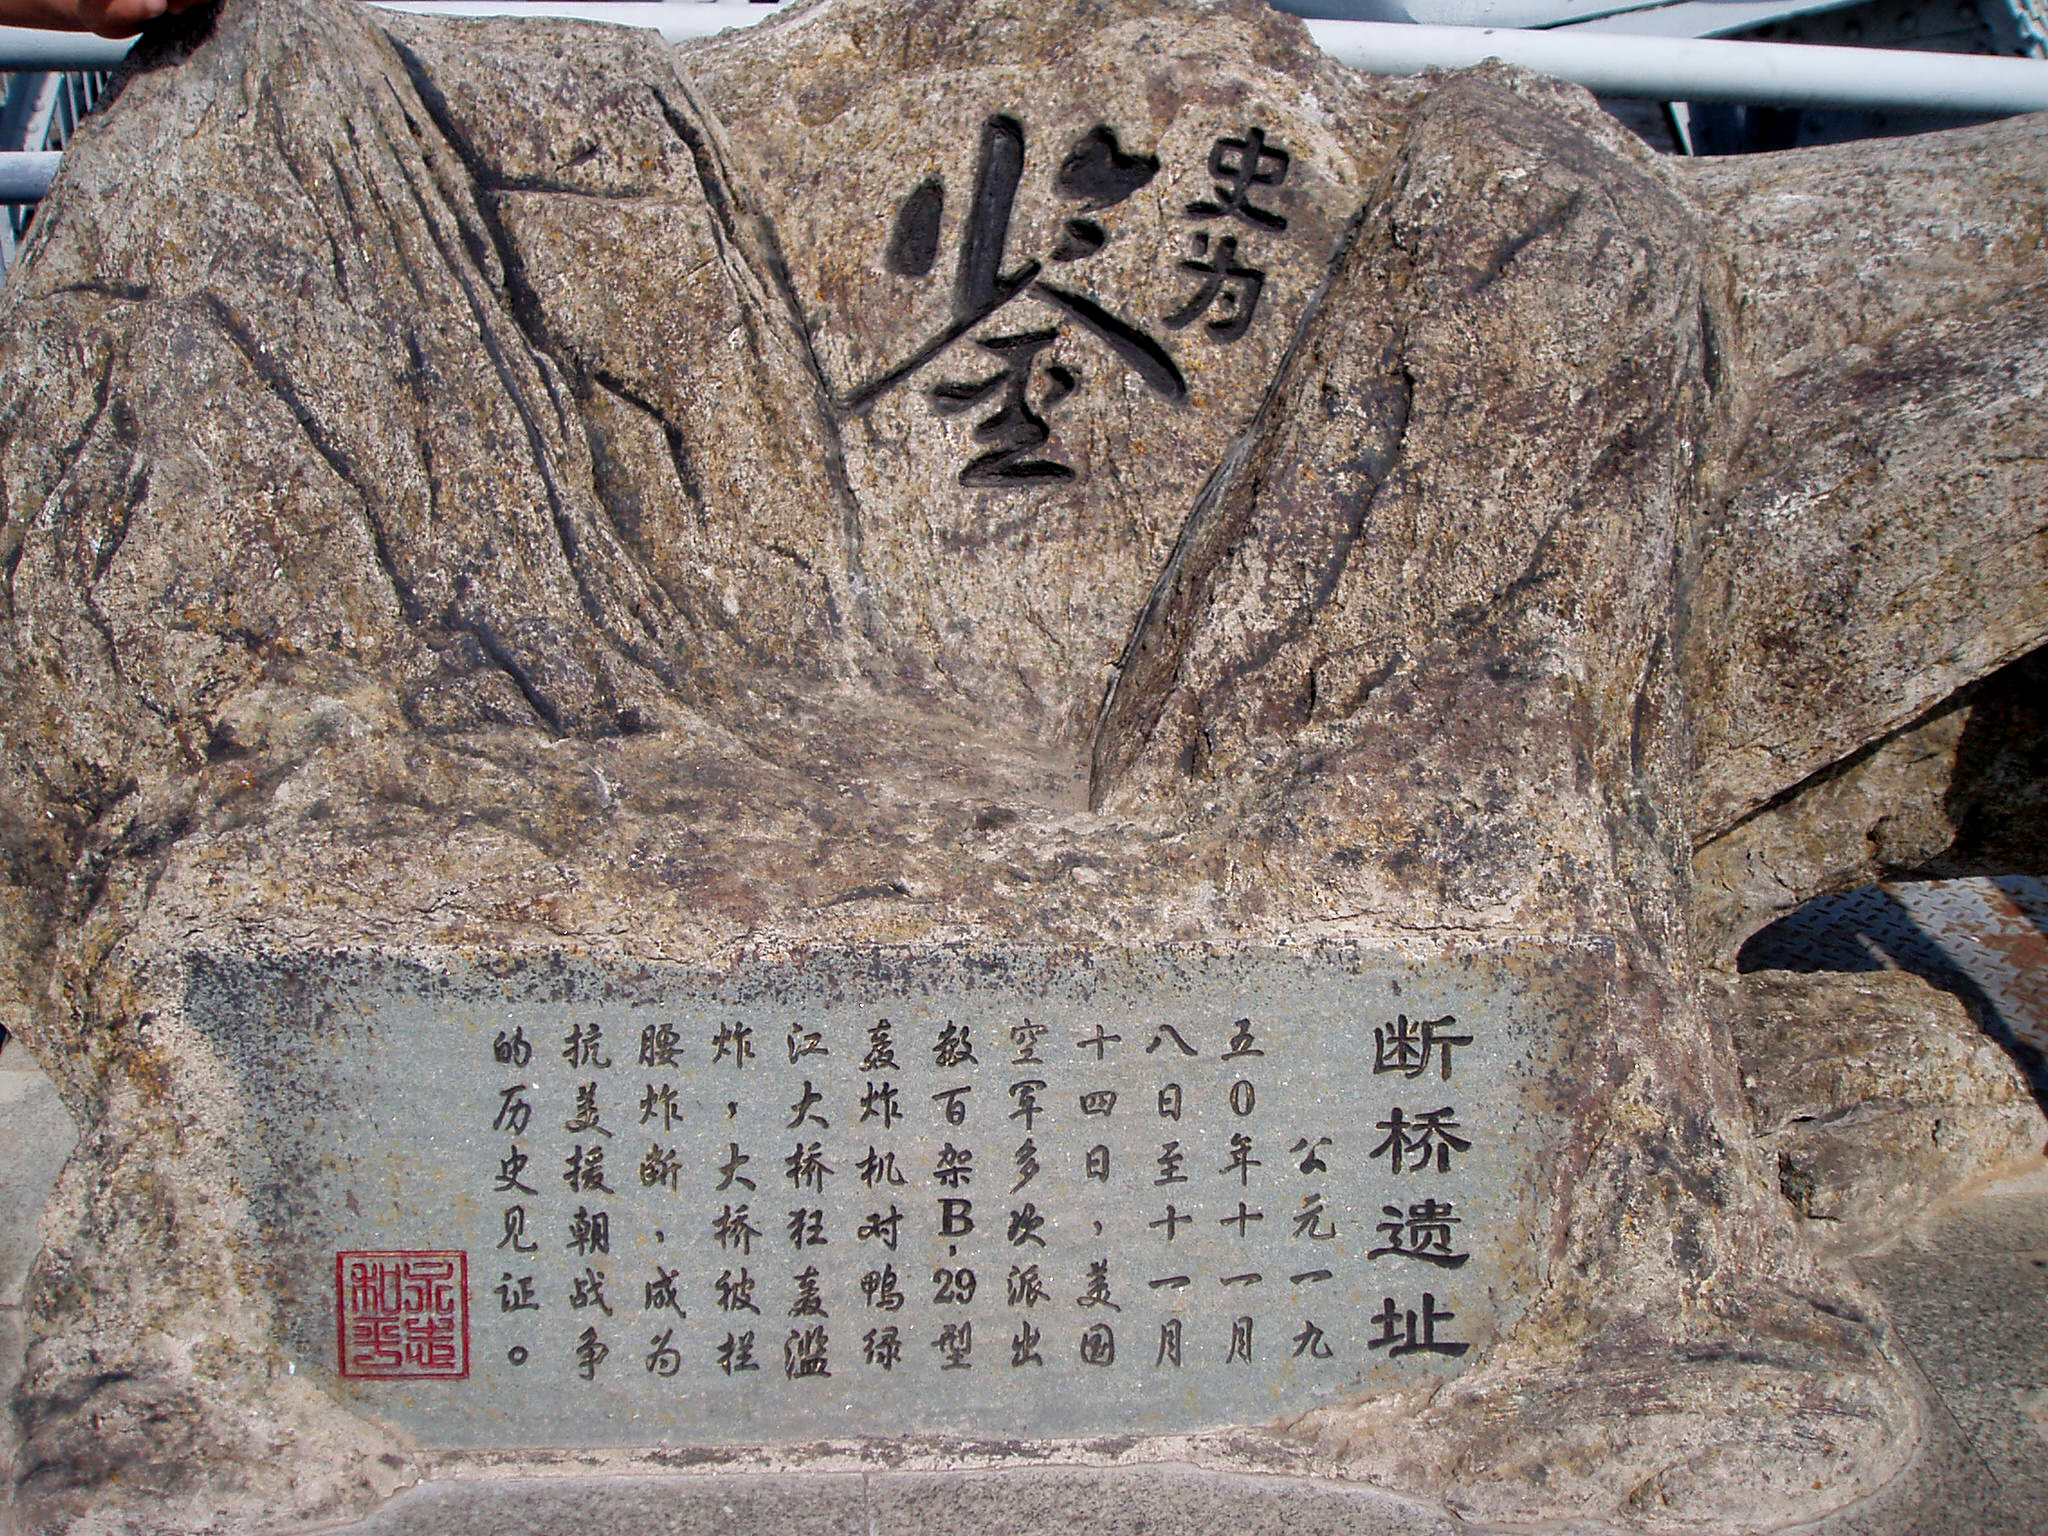 史为
鉴
断桥遗址
公元一九
五0年十一月
八日至十一月
十四日，美国
空军多次派出
数百架B-29型
轰炸机对鸭绿
江大桥狂轰滥
炸，大桥被拦
腰炸断，成为
抗美援朝战争
的历史见证。
永志
和平